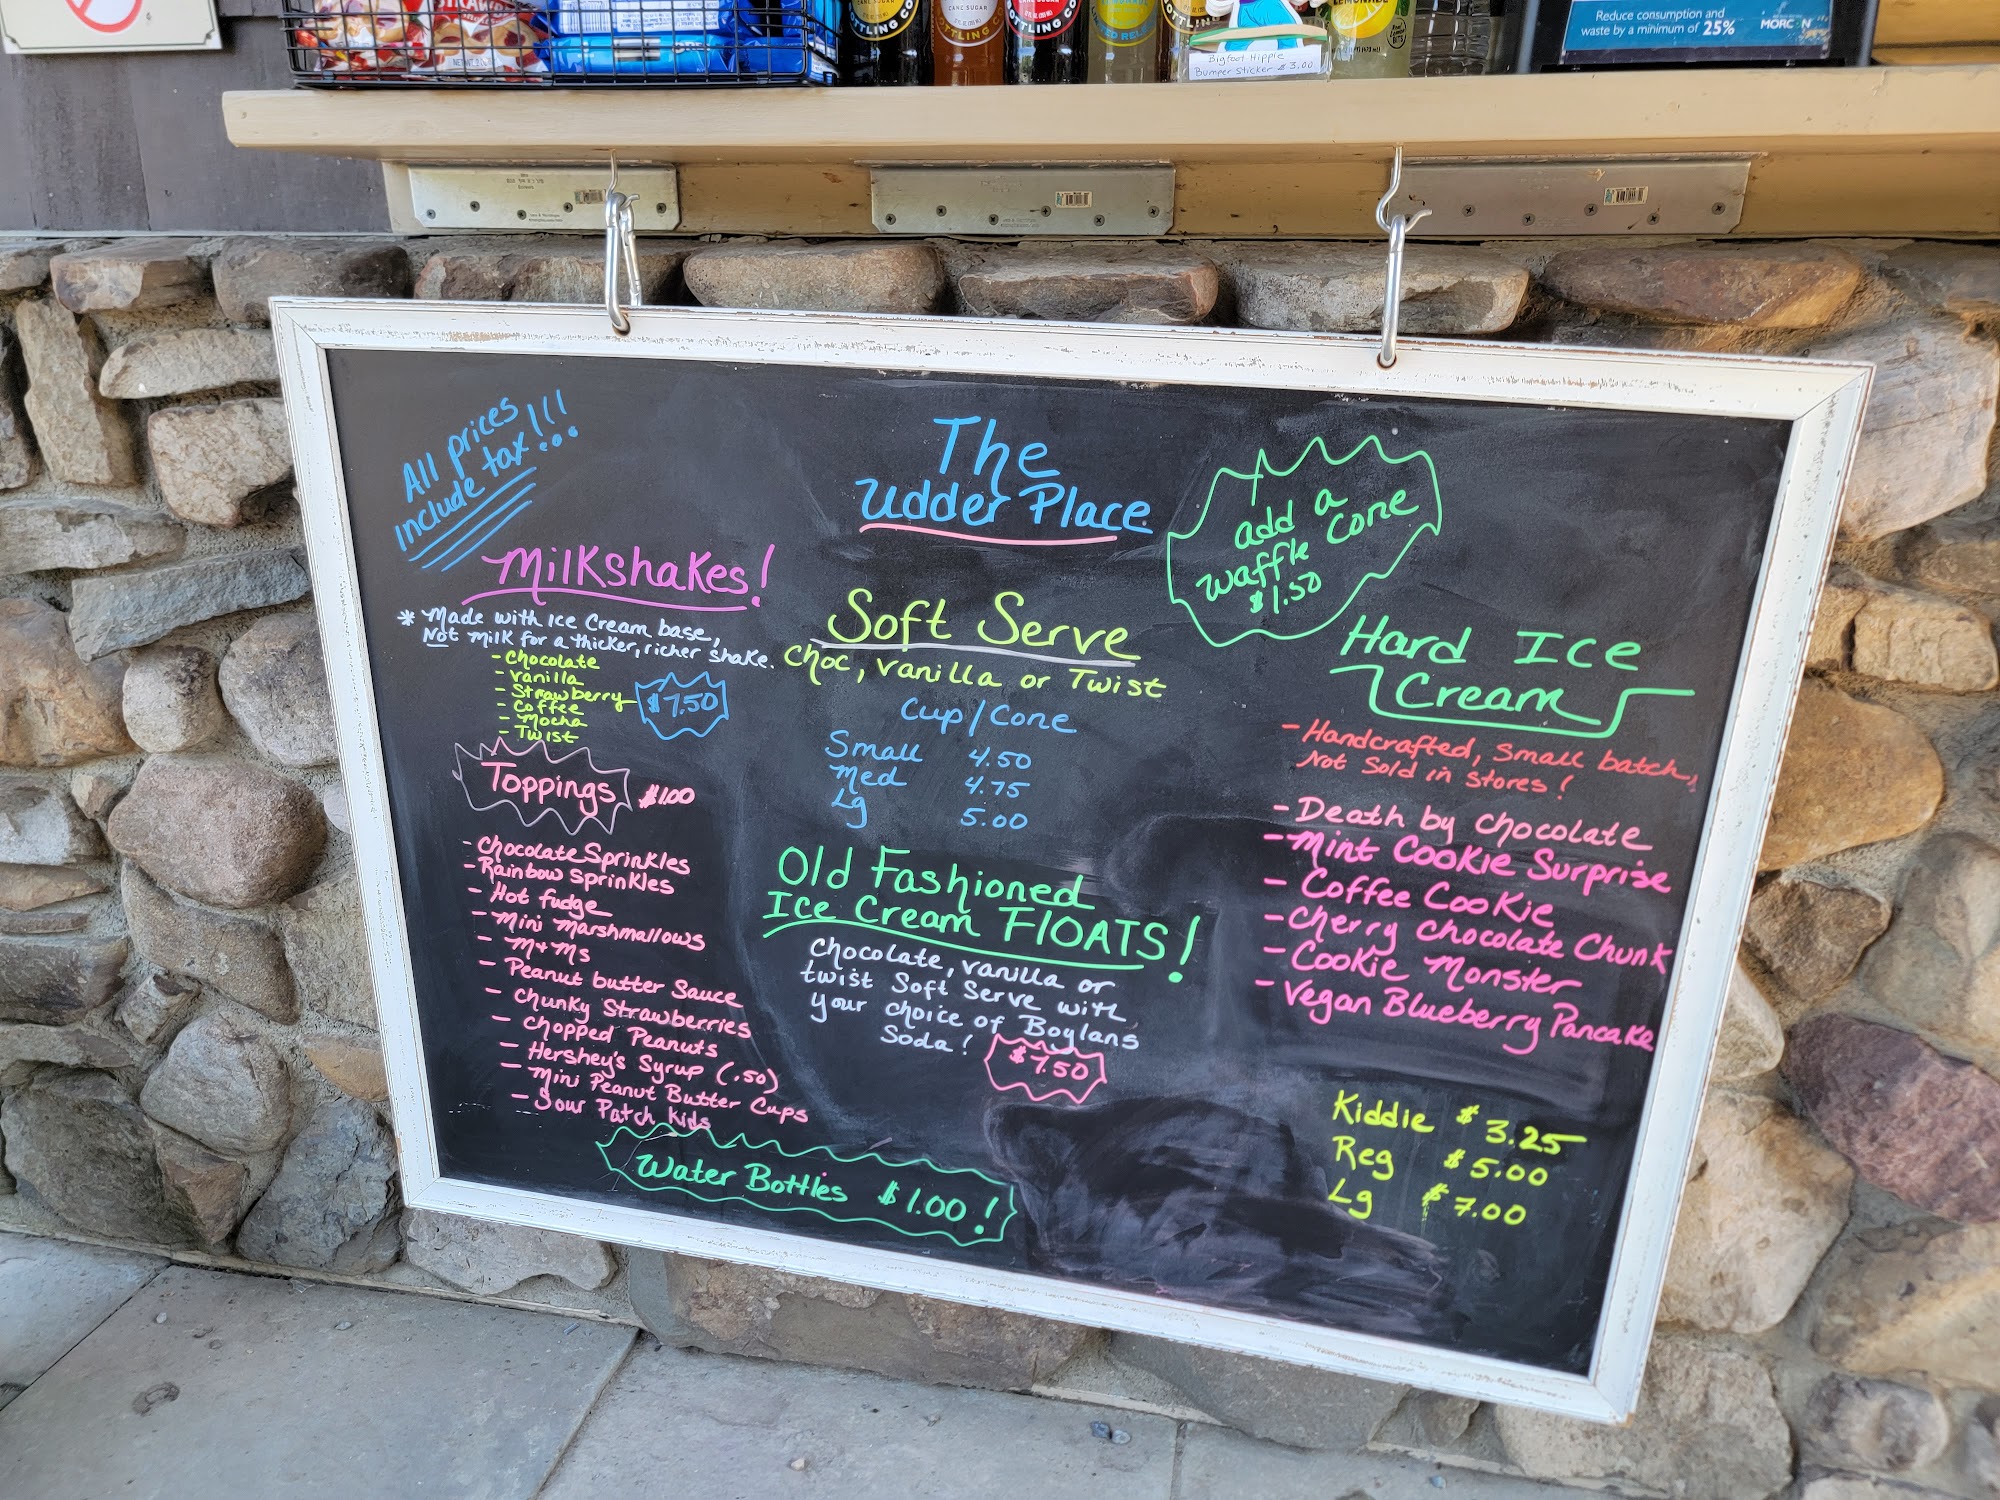 STRAW
NET W
CANE SUGAR
TTLING CO
CANE SUGAR
OTTLING
TTLING CO
LEMONADE
Bigfoot Hippie
Bumper Sticker $3.00
Reduce consumption and
waste by a minimum of 25%
All prices
include tax!!!
The
Udder Place
add a
waffle cone
$1.50
Milkshakes!
* Made with Ice Cream base,
Not milk for a thicker, richer shake.
- Chocolate
- Vanilla
- Strawberry
- Coffee
- Mocha
- Twist
$7.50
Toppings $1.00
- Chocolate Sprinkles
- Rainbow Sprinkles
- Hot fudge
- Mini Marshmallows
- M+Ms
- Peanut butter Sauce
- Chunky Strawberries
- Chopped Peanuts
- Hershey's Syrup (.50)
- Mini Peanut Butter Cups
- Sour Patch Kids
Water Bottles $1.00!
Soft Serve
Choc, Vanilla or Twist
Cup/Cone
Small 4.50
Med 4.75
Lg 5.00
Old Fashioned
Ice Cream FlOATS!
Chocolate, Vanilla or
twist Soft Serve with
your choice of Boylans
Soda! $7.50
Hard Ice
Cream
- Handcrafted, Small batch,
Not Sold in stores!
- Death by Chocolate
- Mint Cookie Surprise
- Coffee Cookie
- Cherry Chocolate Chunk
- Cookie Monster
- Vegan Blueberry Pancake
Kiddie $3.25
Reg $5.00
Lg $7.00